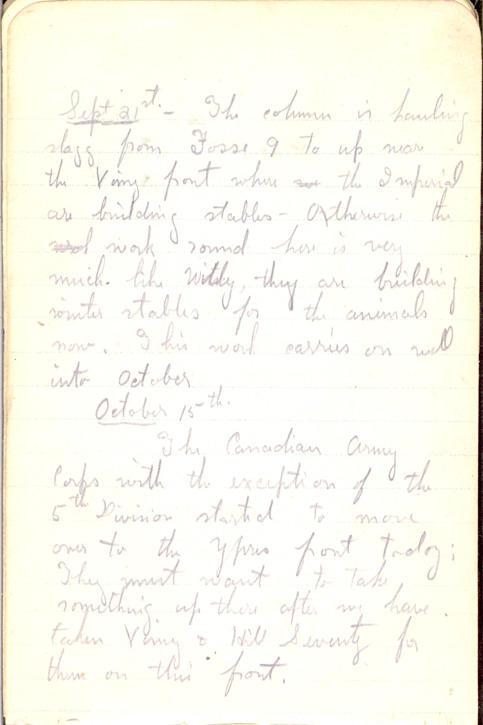 Sept 21st. - The column is hauling
slagg from Fosse 9 to up near
the Vimy front where the Imperial
are building stables - Otherwise the
work round here is very
much like Witley, they are building
winter stables for the animals
now. This work carries on well
into October
October 15th.
The Canadian Army
Corps with the exception of the
5th Division started to move
over to the Ypres front today;
They must want to take
something up there after we have
taken Vimy & Hill Seventy for
them on this front.